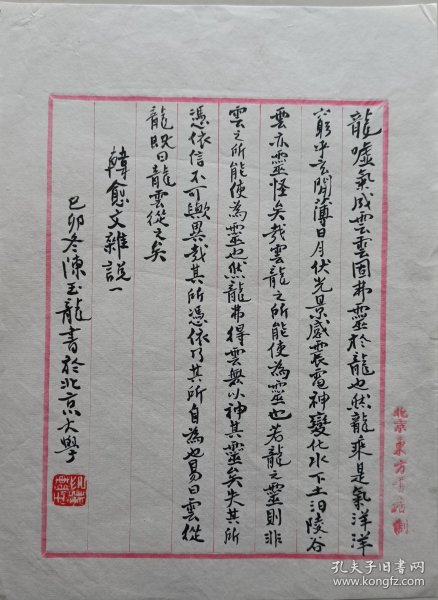 龍噓氣成雲雲固弗靈於龍也然龍乘是氣洋洋
窮乎玄間薄日月伏光景感震電神變化水下土汩陵谷
雲亦靈怪矣哉雲龍之所能使為靈也若龍之靈則非
雲之所能使為靈也然龍弗得雲無以神其靈矣失其所
憑依信不可歟異哉其所憑依乃其所自為也易曰雲從
龍既曰龍雲從之矣
韓愈文雜說一
己卯冬陳玉龍書於北京大學
北京東方
孔夫子旧书网
www.kongfz.com